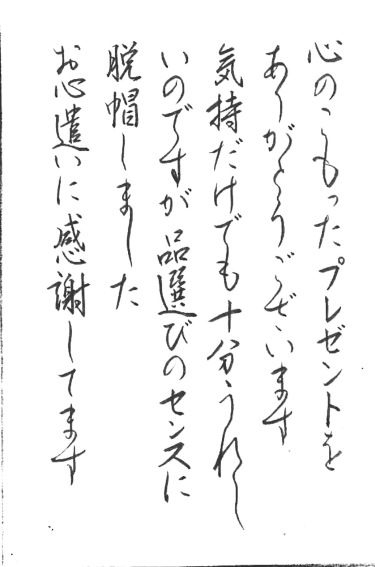 心のこもったプレゼントを
ありがとうございます
気持だけでも十分うれし
いのですが品選びのセンスに
脱帽しました
お心遣いに感謝してます